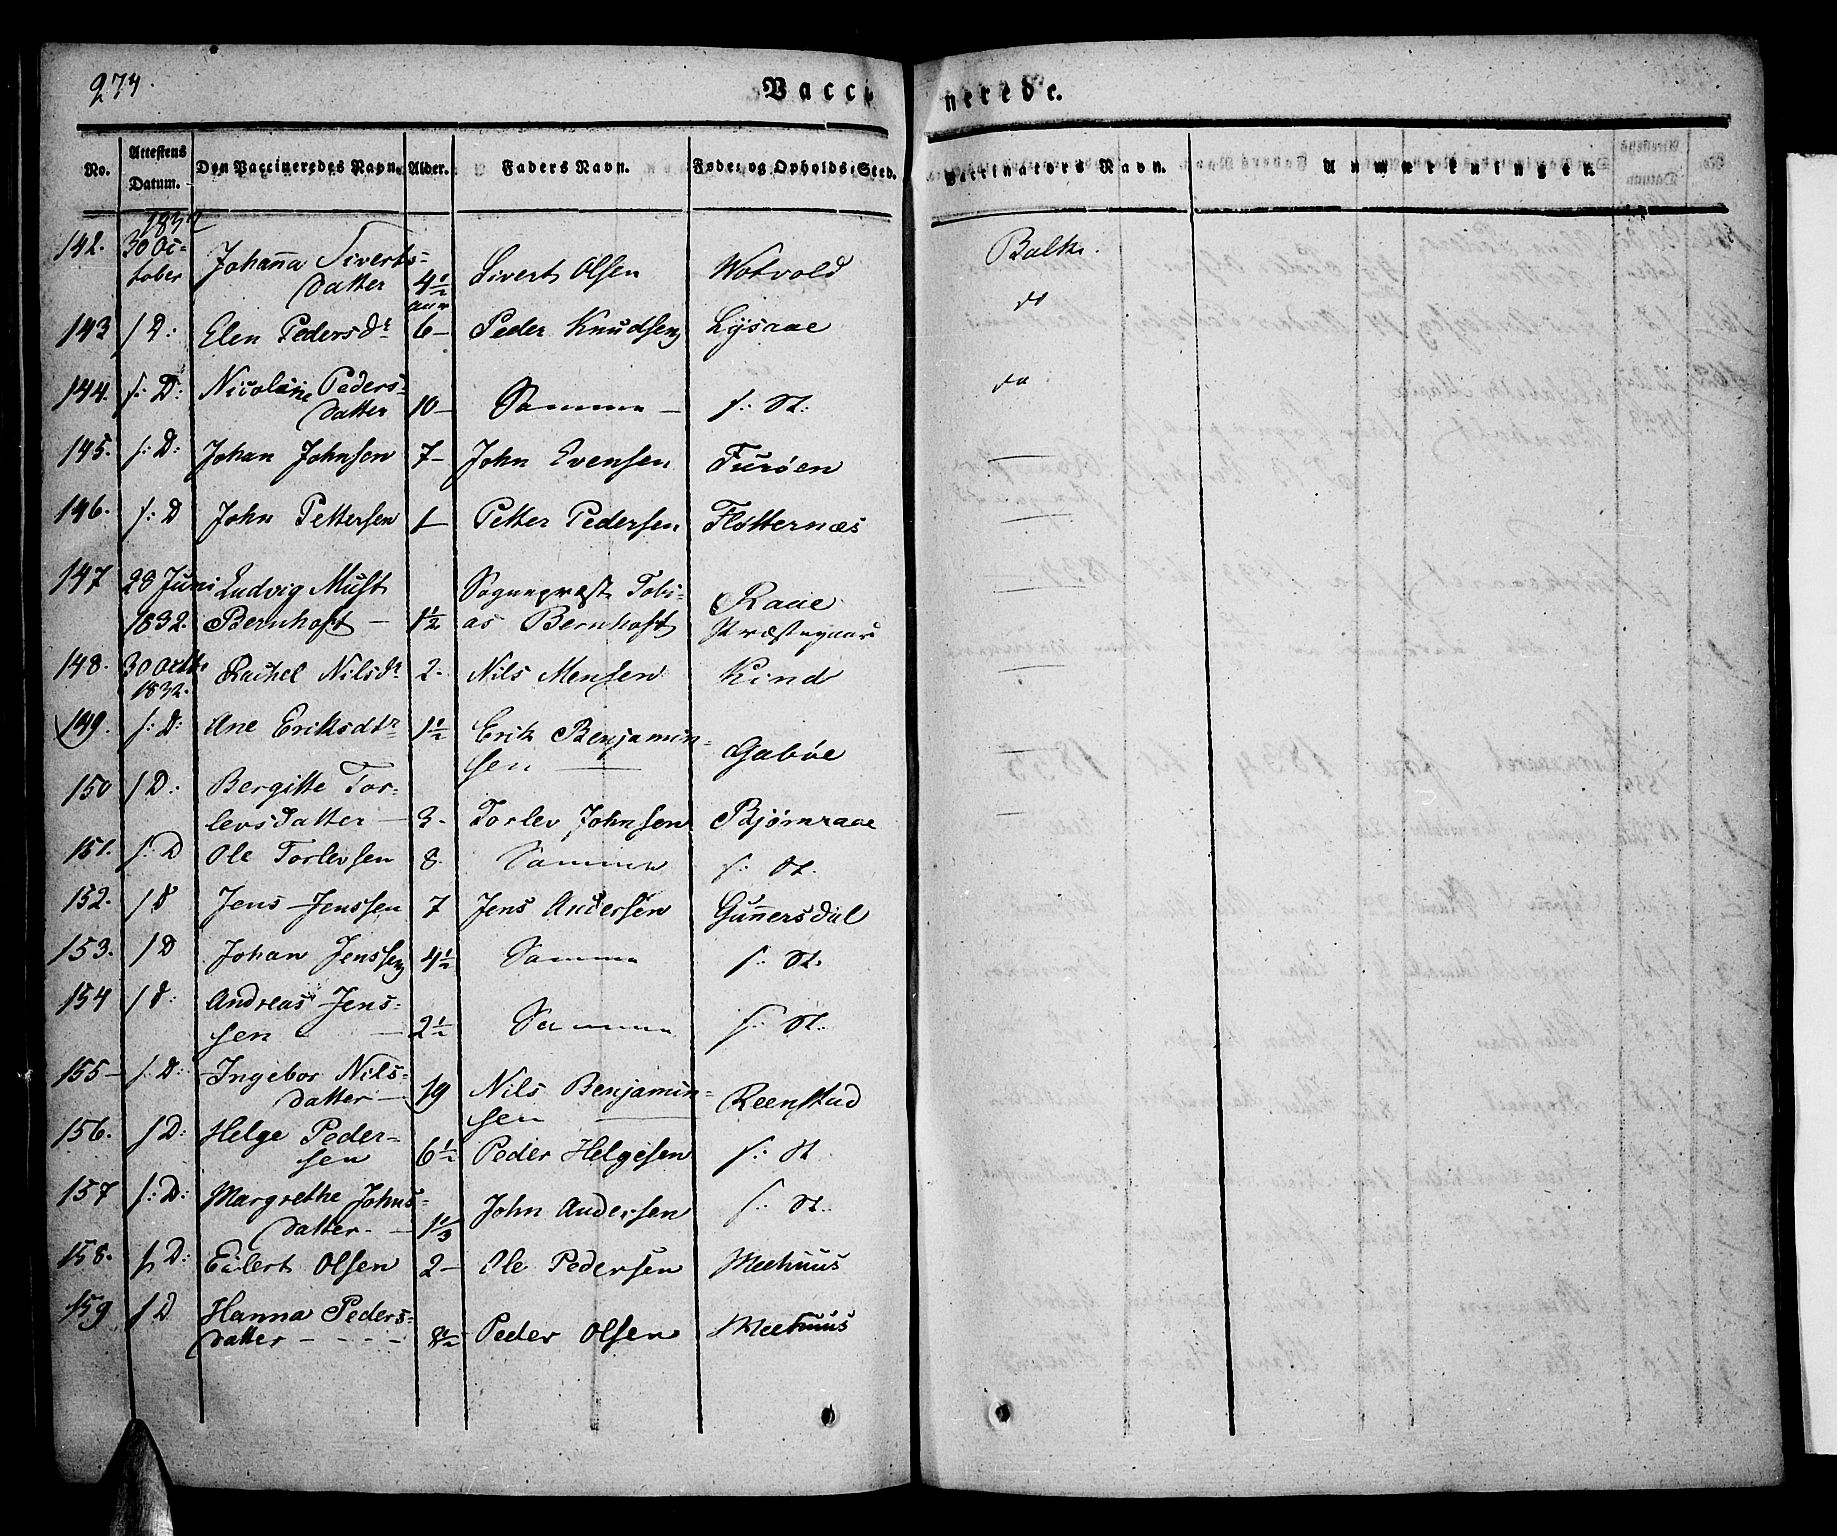 274.
Vaccinerede.
No. Attestens Datum. Den Vaccineredes Navn. Alder. Faders Navn. Føde- og Opholds-Sted. Vaccinators Navn. Anmærkninger.
1832
142. 30 Oc- Johanna Siverts-
tober datter 4½ Sivert Olsen Votvold Balke.
aar
143 s D: Elen Pedersdr 6 - Peder Knudsen Lysaae do
144. s: D: Nicoline Peders-
datter 10 - Samme - s: St: do
145. s: D: Johan Johnsen 7 - John Evensen Furøen —
146. s: D John Pettersen 1 - Petter Pedersen Fløtternæs —
147 28 Juni Ludvig Must Sognepræst Tobi-
1832. Bernhoft - 1½ as Bernhoft Raae —
Præstegaard
148. 30 Octbr Rachel Nilsdr 2. Nils Mensen Kind —
1832.
149. s: D: Ane Eriksdtr 1½ Erik Benjamin-
sen — Gabøe —
150 s D: Bergitte Tor-
levsdatter - 3. Torlev Johnsen Bjørnraae —
151. s: D Ole Torlevsen 8. Samme s: St.
152. s D Jens Jenssen 7 Jens Andersen Gunnersdal
153. s D Johan Jenssen 4½ Samme s: St.
154 s D: Andreas Jens-
sen - 2½ Samme s: St.
155 - s: D: Ingebor Nils-
datter - 19 Nils Benjamin-
sen — Reenstad
156. s D: Helge Peder-
sen 6½ Peder Helgesen s: St
157 s: D: Margrethe Johns-
datter. - 1⅓ John Andersen s: St.
158. s D: Eilert Olsen 2 - Ole Pedersen Meehuus
159 s D Hanna Peders-
datter - - - - 8½ Peder Olsen Meehuus